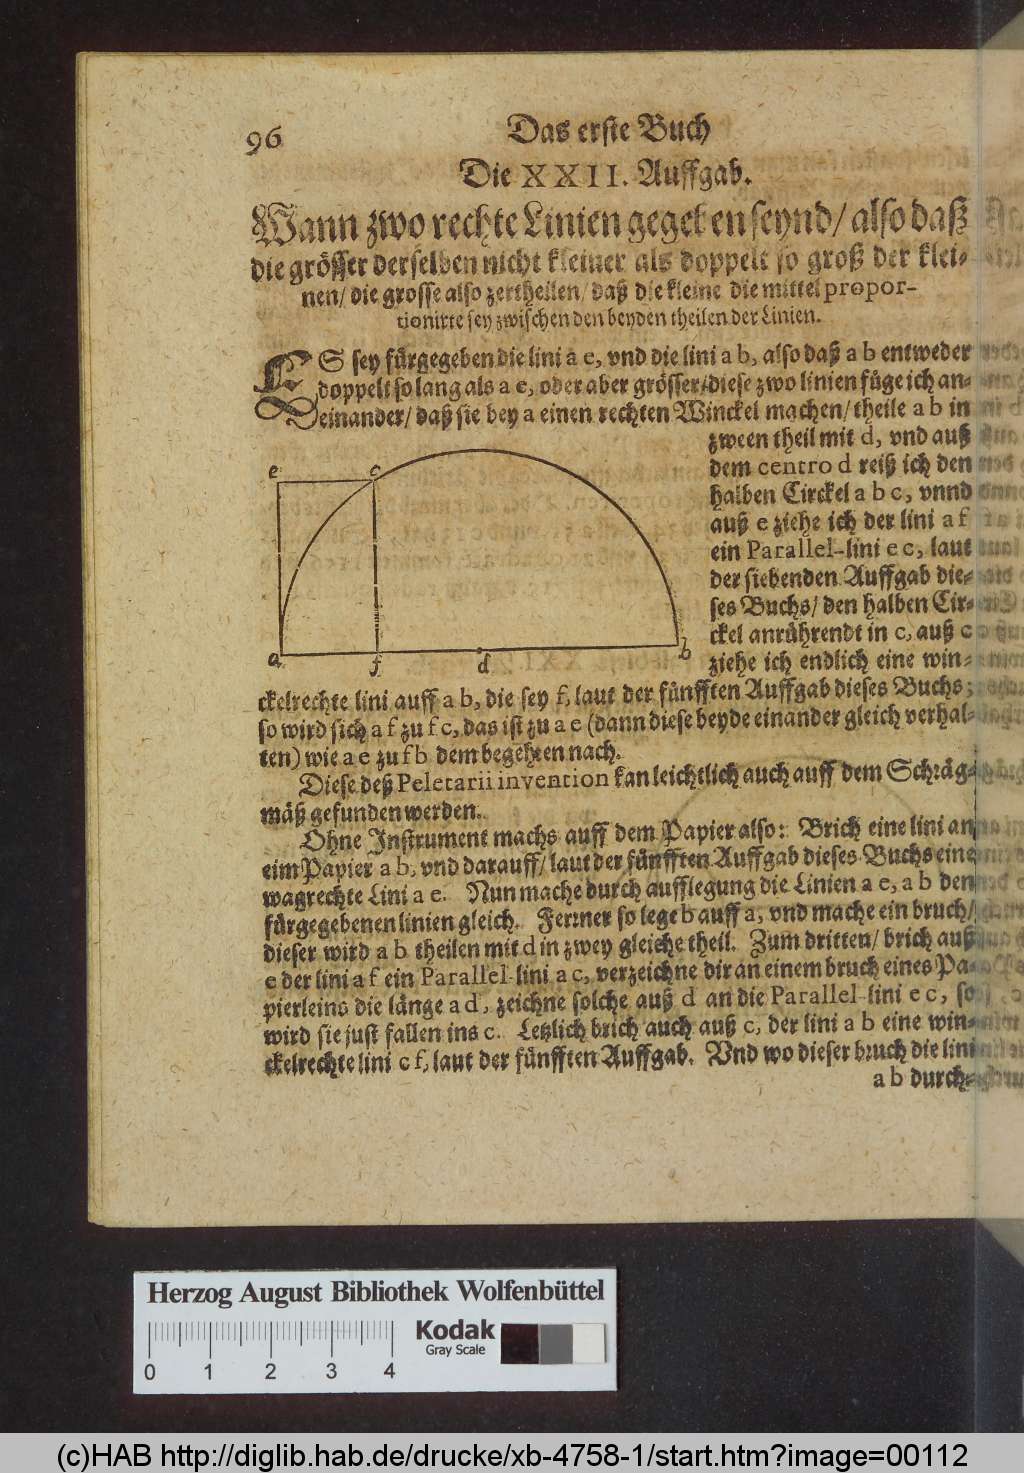 96
Das erste Buch
Die XXII. Auffgab.
Wann zwo rechte Linien gegeben seynd/ also daß
die grösser derselben nicht kleiner als doppelt so groß der klei-
nen/ die grosse also zertheilen/ daß die kleine die mittel propor-
tionirte sey zwischen den beyden theilen der Linien.
ES sey fürgegeben die lini a e, vnd die lini a b, also daß a b entweder
doppelt so lang als a e, oder aber grösser/ diese zwo linien füge ich an-
einander/ daß sie bey a einen rechten Winckel machen/ theile a b in
zween theil mit d, vnd auß
dem centro d reiß ich den
halben Circkel a b c, vnnd
auß e ziehe ich der lini a f
ein Parallel-lini e c, laut
der siebenden Auffgab die-
ses Buchs/ den halben Cir-
ckel anrührendt in c, auß c
ziehe ich endlich eine win-
e c a f d b
ckelrechte lini auff a b, die sey f, laut der fünfften Auffgab dieses Buchs;
so wird sich a f zu f c, das ist zu a e (dann diese beyde einander gleich verhal-
ten) wie a e zu f b dem begehren nach.
Diese deß Peletarii invention kan leichtlich auch auff dem Schräg-
mäß gefunden werden.
Ohne Instrument machs auff dem Papier also: Brich eine lini an
eim Papier a b, vnd darauff/ laut der fünfften Auffgab dieses Buchs eine
wagrechte Lini a e. Nun mache durch aufflegung die Linien a e, a b den
fürgegebenen linien gleich. Ferrner so lege b auff a, vnd mache ein bruch/
dieser wird a b theilen mit d in zwey gleiche theil. Zum dritten/ brich auß
e der lini a f ein Parallel-lini a c, verzeichne dir an einem bruch eines Pa-
pierleins die länge a d, zeichne solche auß d an die Parallel-lini e c, so
wird sie just fallen ins c. Letzlich brich auch auß c, der lini a b eine win-
ckelrechte lini c f, laut der fünfften Auffgab. Vnd wo dieser bruch die lini
a b durch-
Herzog August Bibliothek Wolfenbüttel
Kodak
Gray Scale
0 1 2 3 4
(c)HAB http://diglib.hab.de/drucke/xb-4758-1/start.htm?image=00112